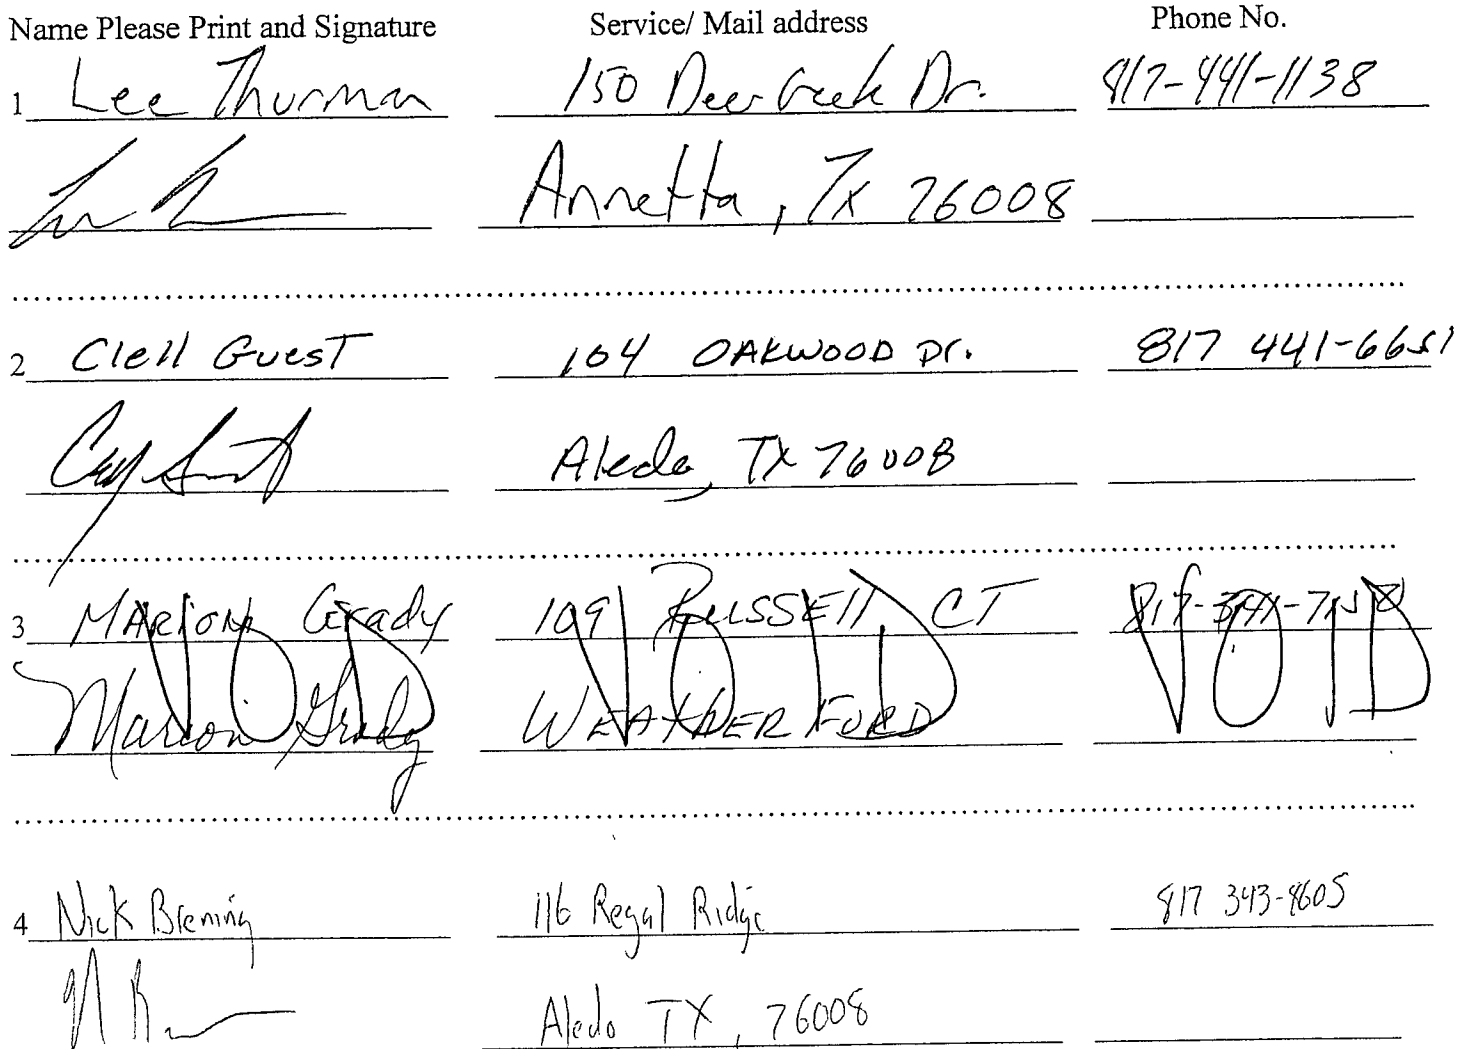 Name Please Print and Signature Service/ Mail address Phone No.
1 Lee Thurman 150 Deer Creek Dr. 817-441-1138
Annetta, Tx 76008
2 Clell Guest 104 OAKWOOD Dr. 817 441-6651
Aledo, TX 76008
3 MARION Grady 109 RUSSELL CT
VOID VOID VOID
Marion Grady WEATHERFORD
4 Nick Brening 116 Regal Ridge 817 343-8605
Aledo TX, 76008